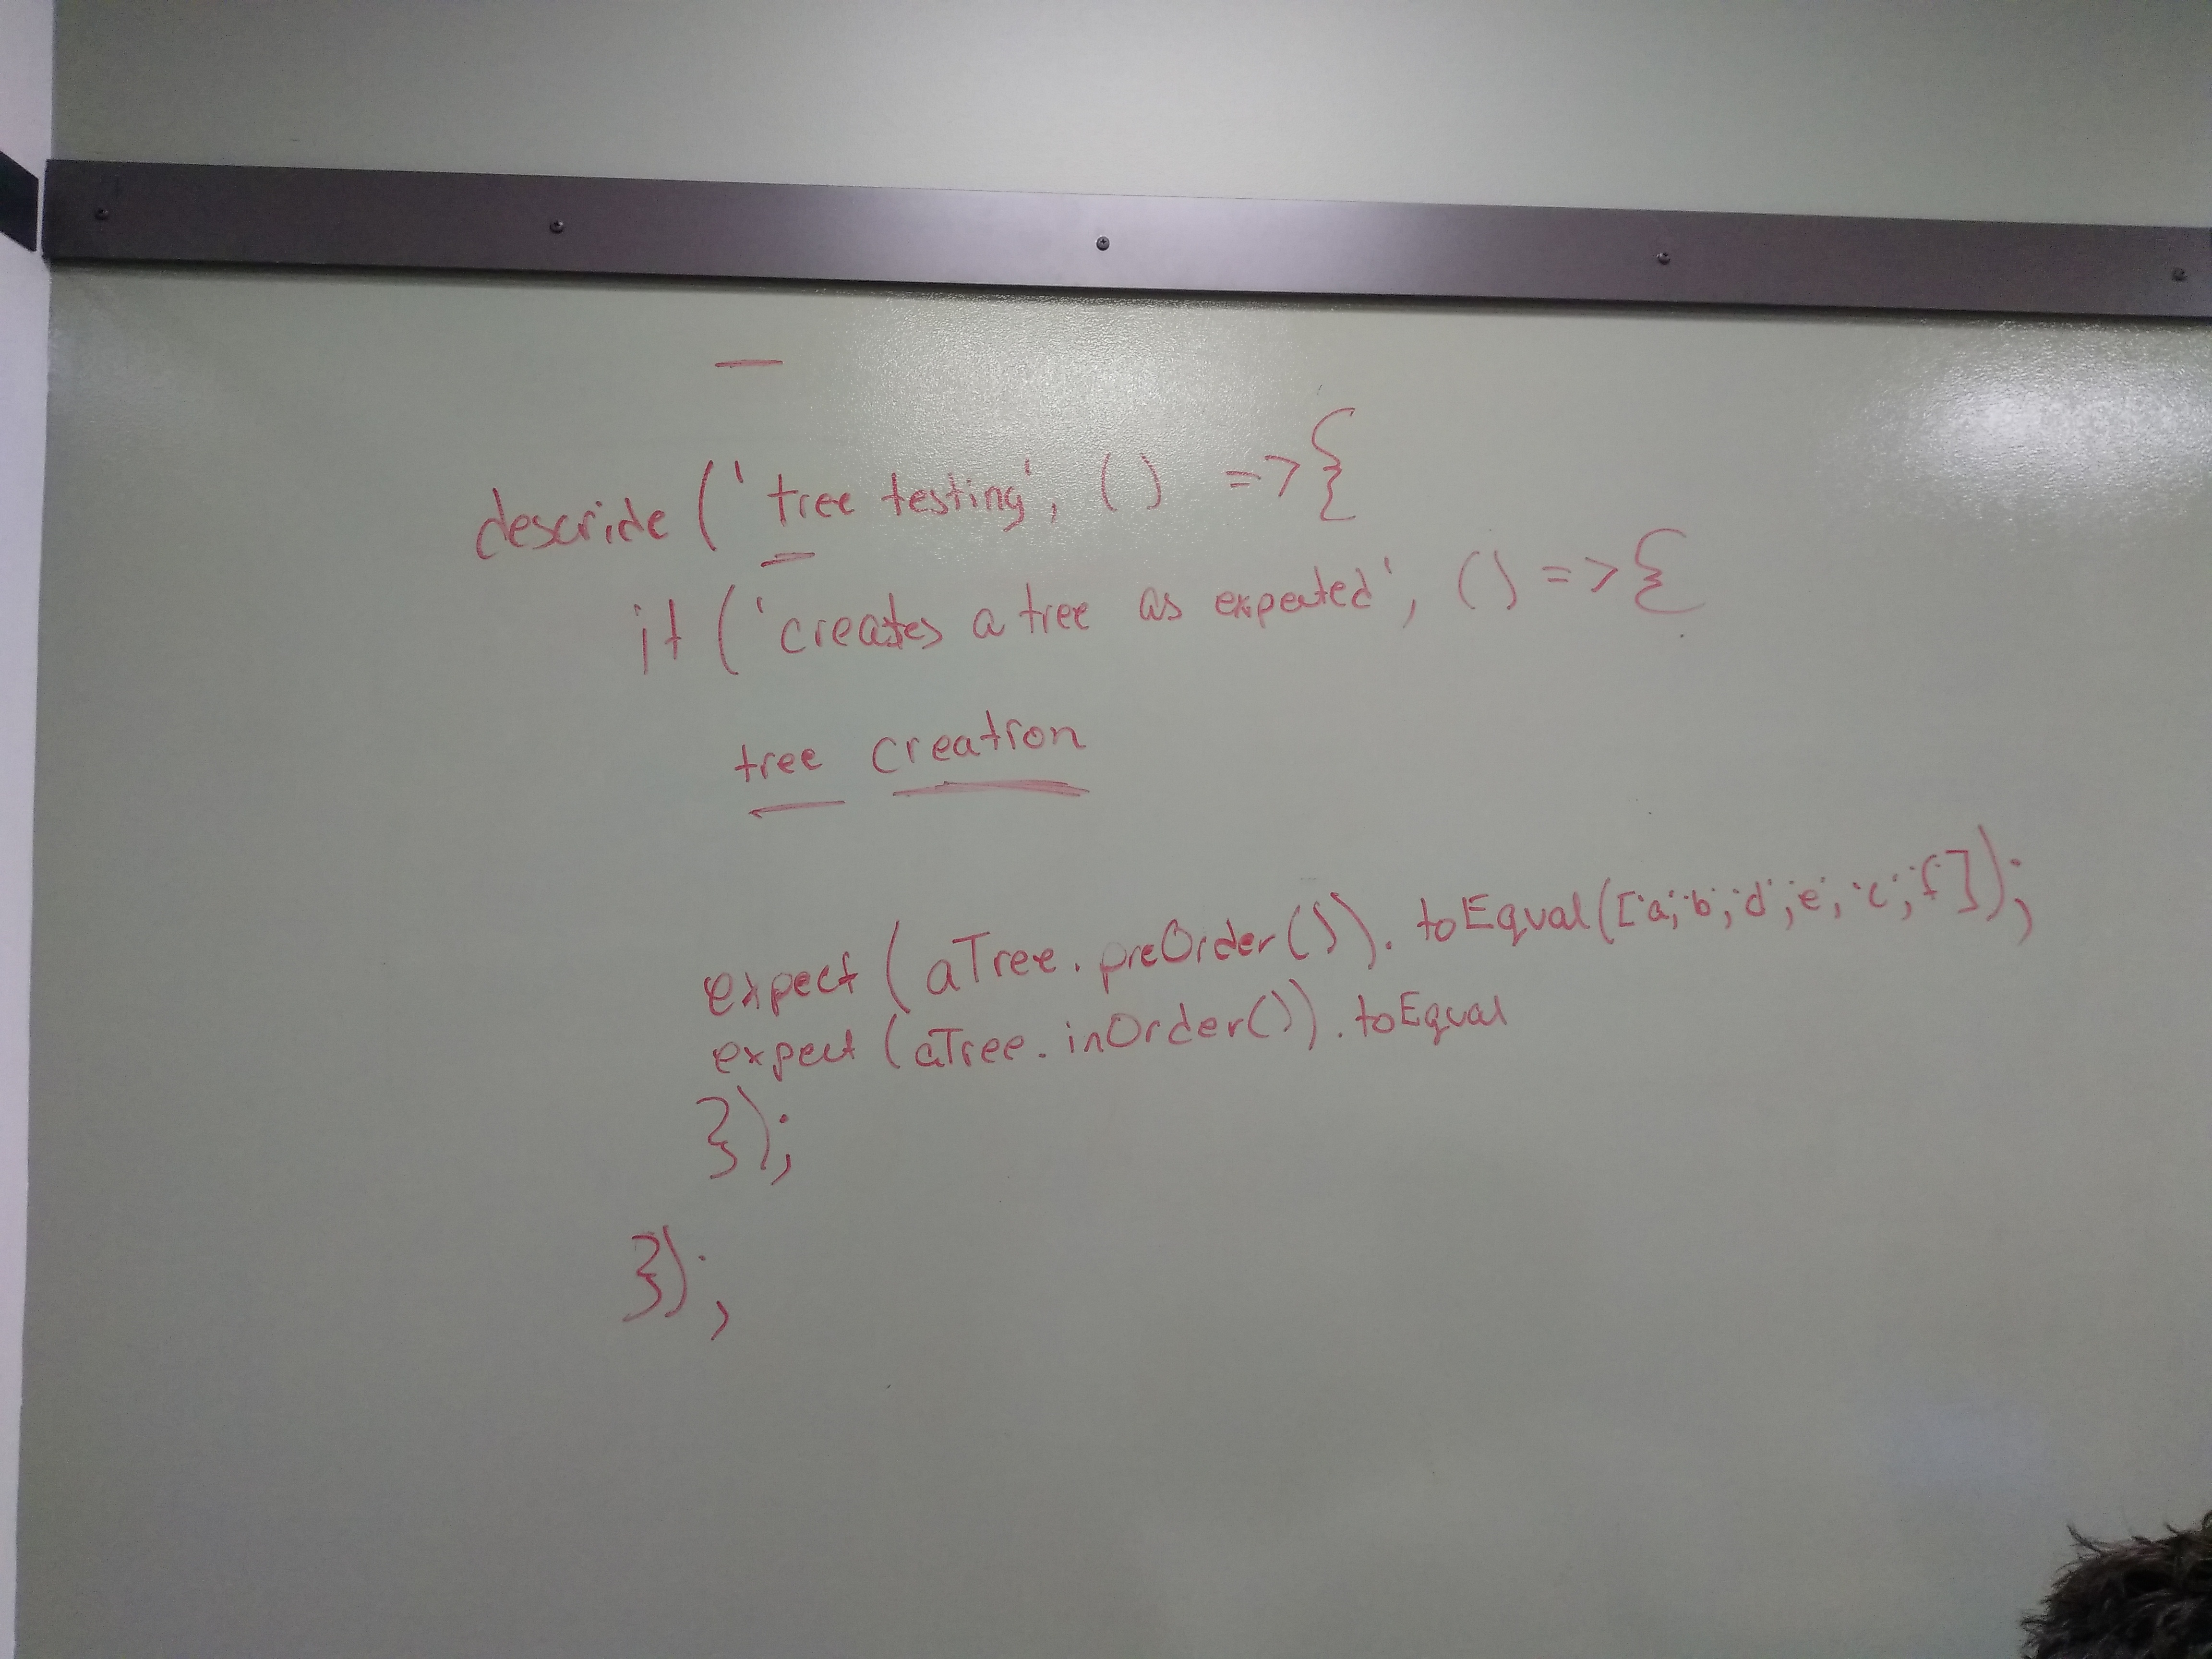 describe ('tree testing', () => {
it ('creates a tree as expected', () => {
tree creation
expect (aTree.preOrder()).toEqual(['a','b','d','e','c','f']);
expect (aTree.inOrder()).toEqual
});
});